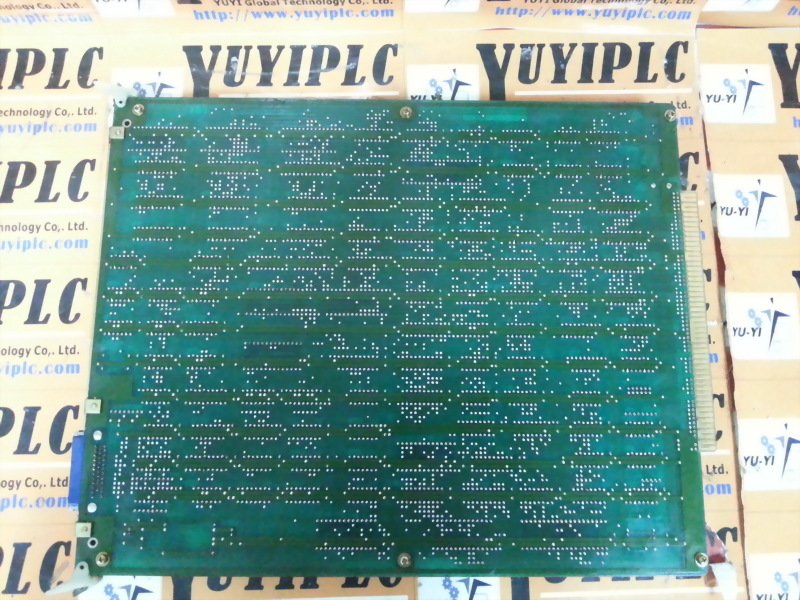 YUYI Global Technology Co,. Ltd.
http://www.yuyiplc.com
YUYI Global Technology Co,. Ltd.
http://www.yuyiplc.com
YUYIPLC
YUYIPLC
YUYIPLC
YU-YI
echnology Co,. Ltd.
yuyiplc.com
UYIPLC
YU-YI
hnology Co,. Ltd.
yuyiplc.com
YIPLC
YU-YI
ology Co,. Ltd.
yiplc.com
YIPLC
YU-YI
gy Co,. Ltd.
plc.com
PLC